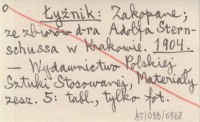 Łyżnik: Zakopane;
ze zbiorów d-ra Adolfa Stern-
schussa w Krakowie. 1904.
— Wydawnictwo Polskiej
Sztuki Stosowanej, Materiały
zesz. 5: tabl., tylko fot.
AT/088/0868